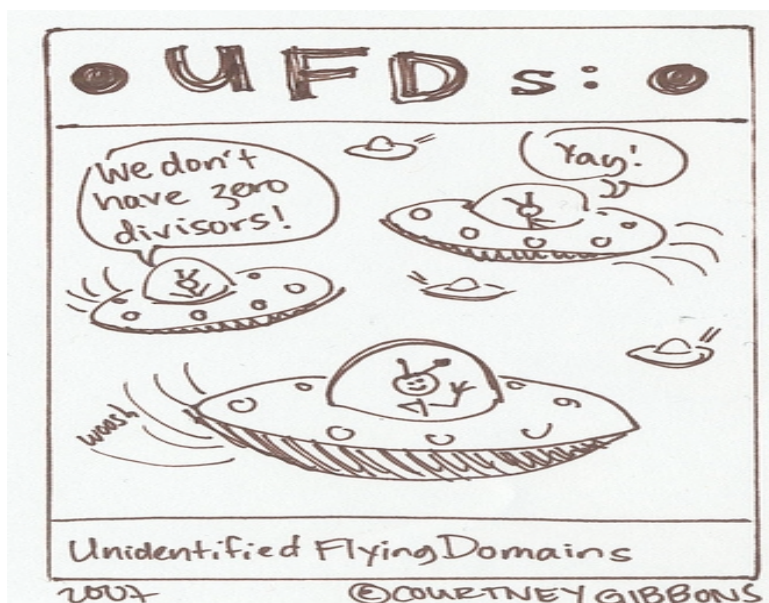 UFDs:
We don't
have zero
divisors!
Yay!
woosh
Unidentified Flying Domains
2007 ©COURTNEY GIBBONS